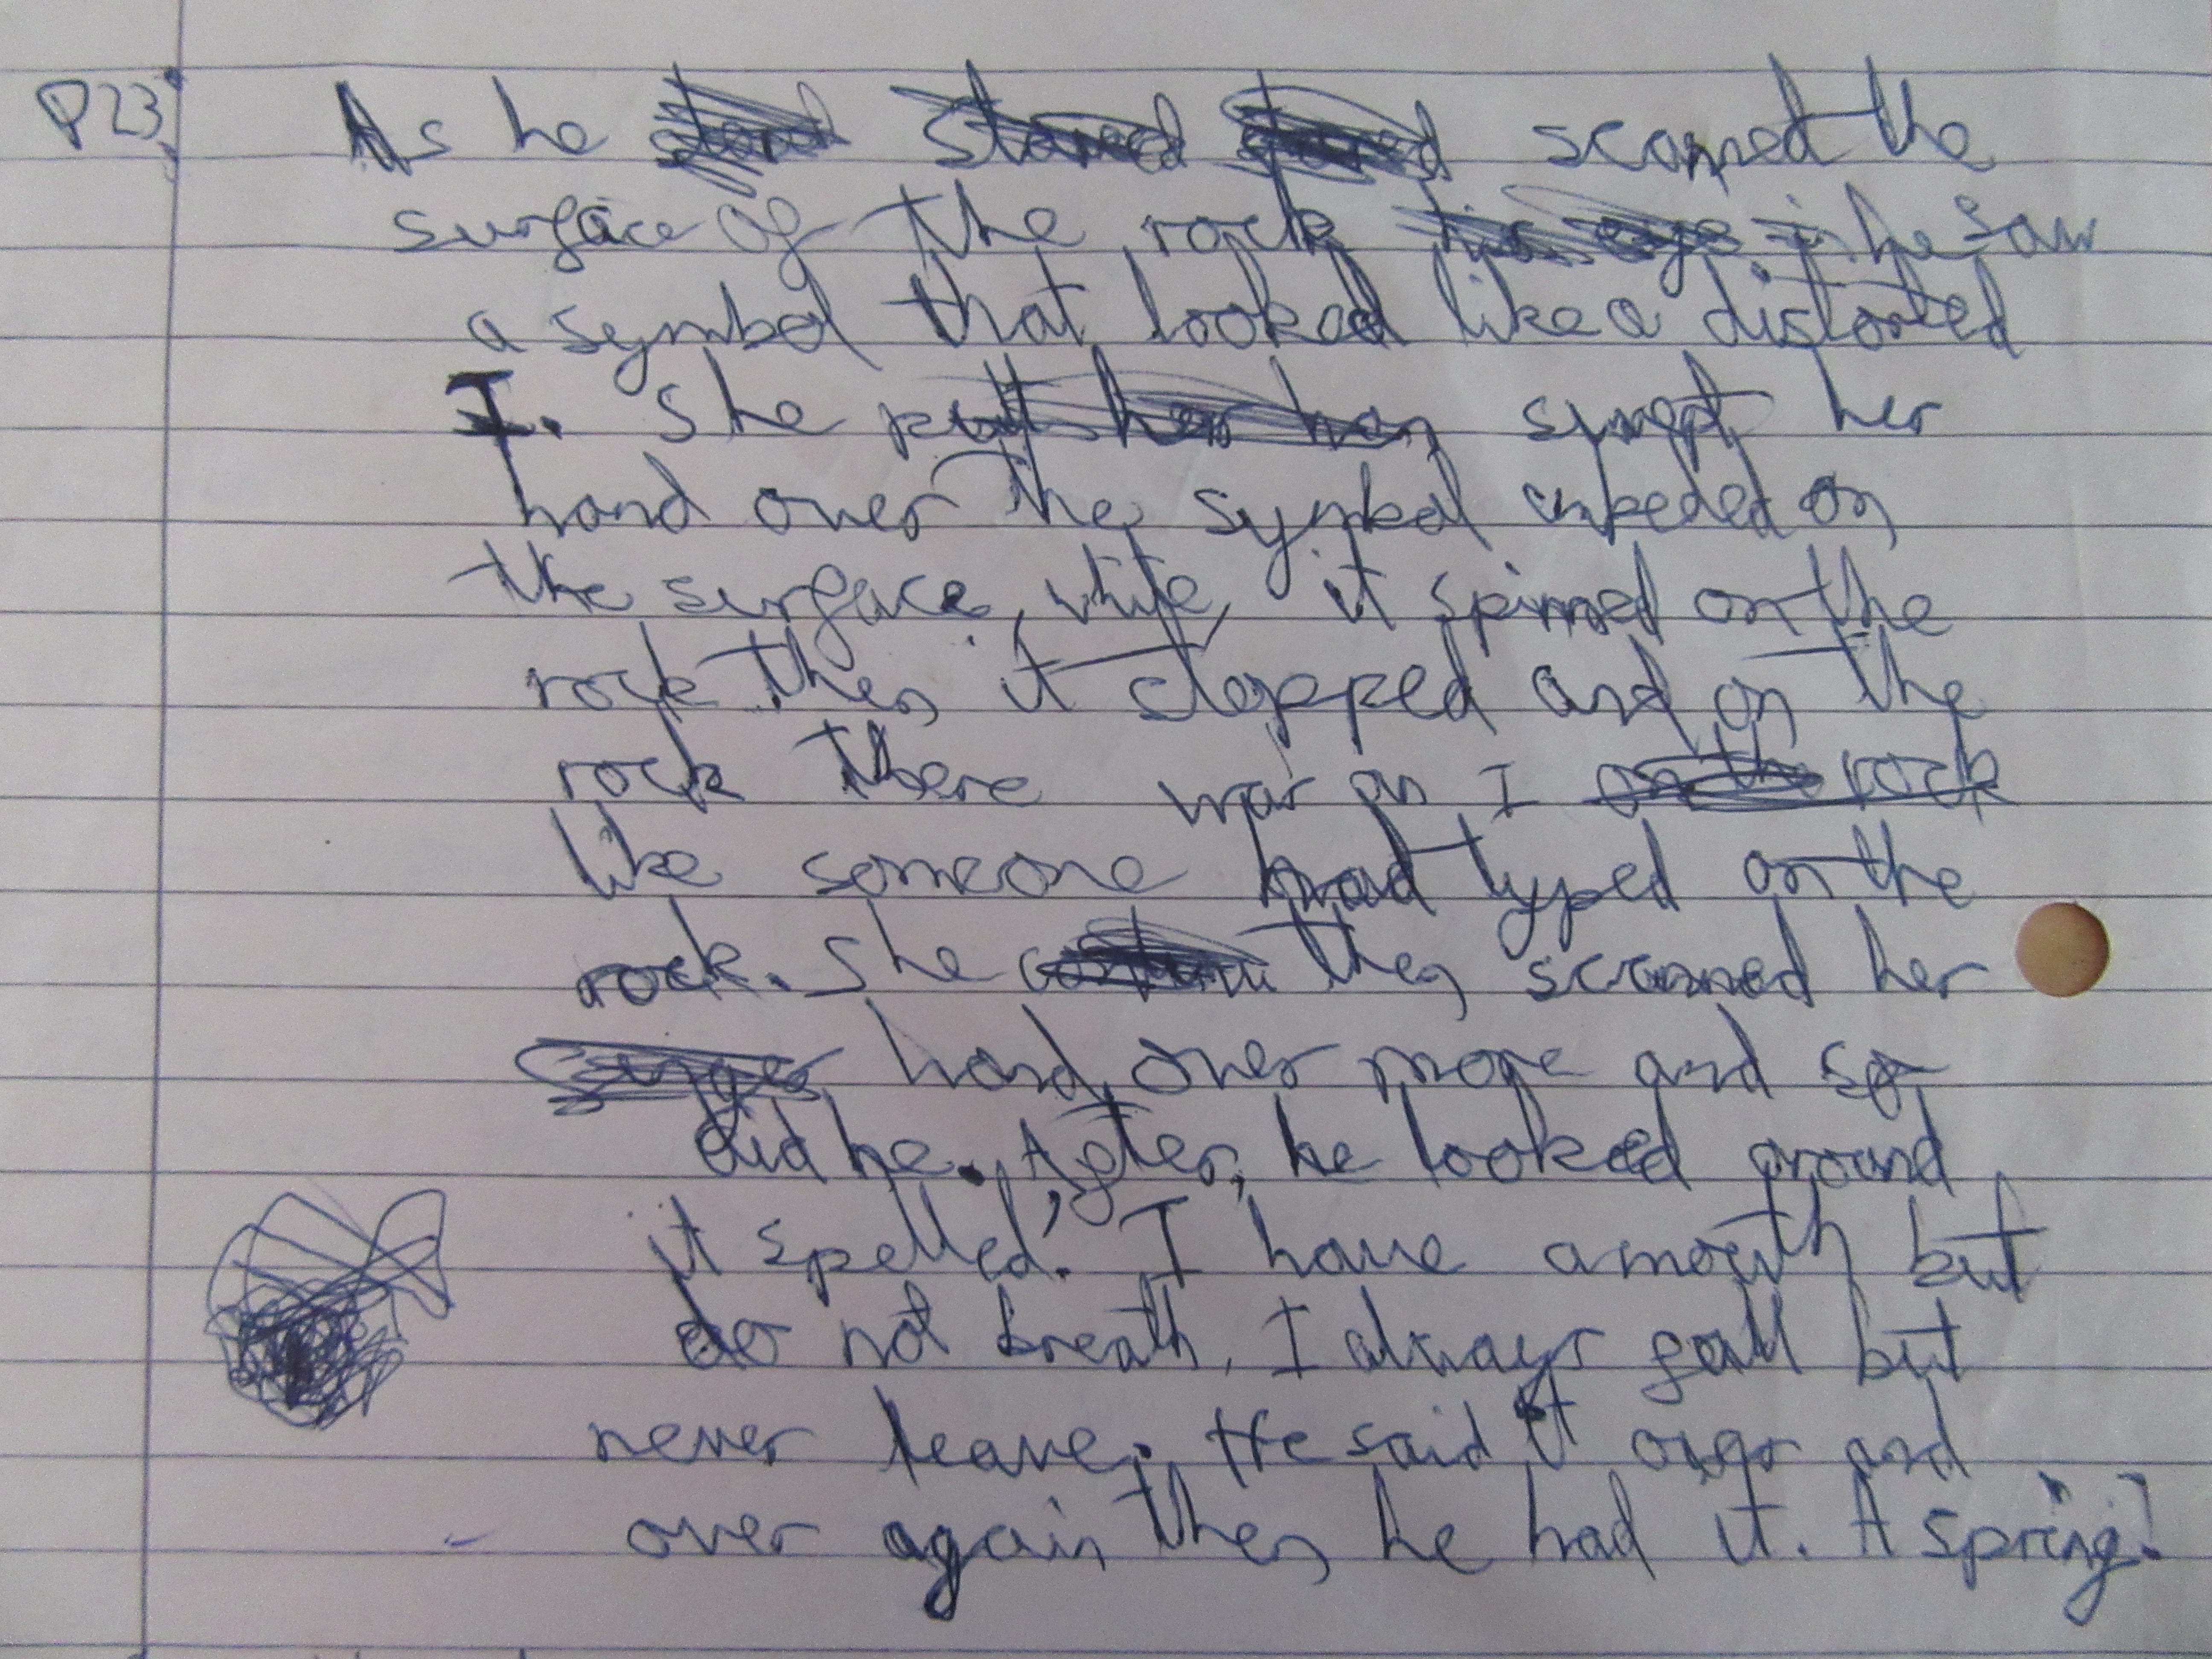 P23: As he stared scanned the
surface of the rock his eye he saw
a symbol that looked like a distorted
I. She put her han swept her
hand over the symbol inbeded on
the surface, white, it spinned on the
rock then it stopped and on the
rock there was an I on the rock
like someone had typed on the
rock. She then scanned her
hand over more and so
did he. After, he looked around
it spelled: I have a mouth but
do not breath, I always fall but
never leave. He said it over and
over again then he had it. A spring!